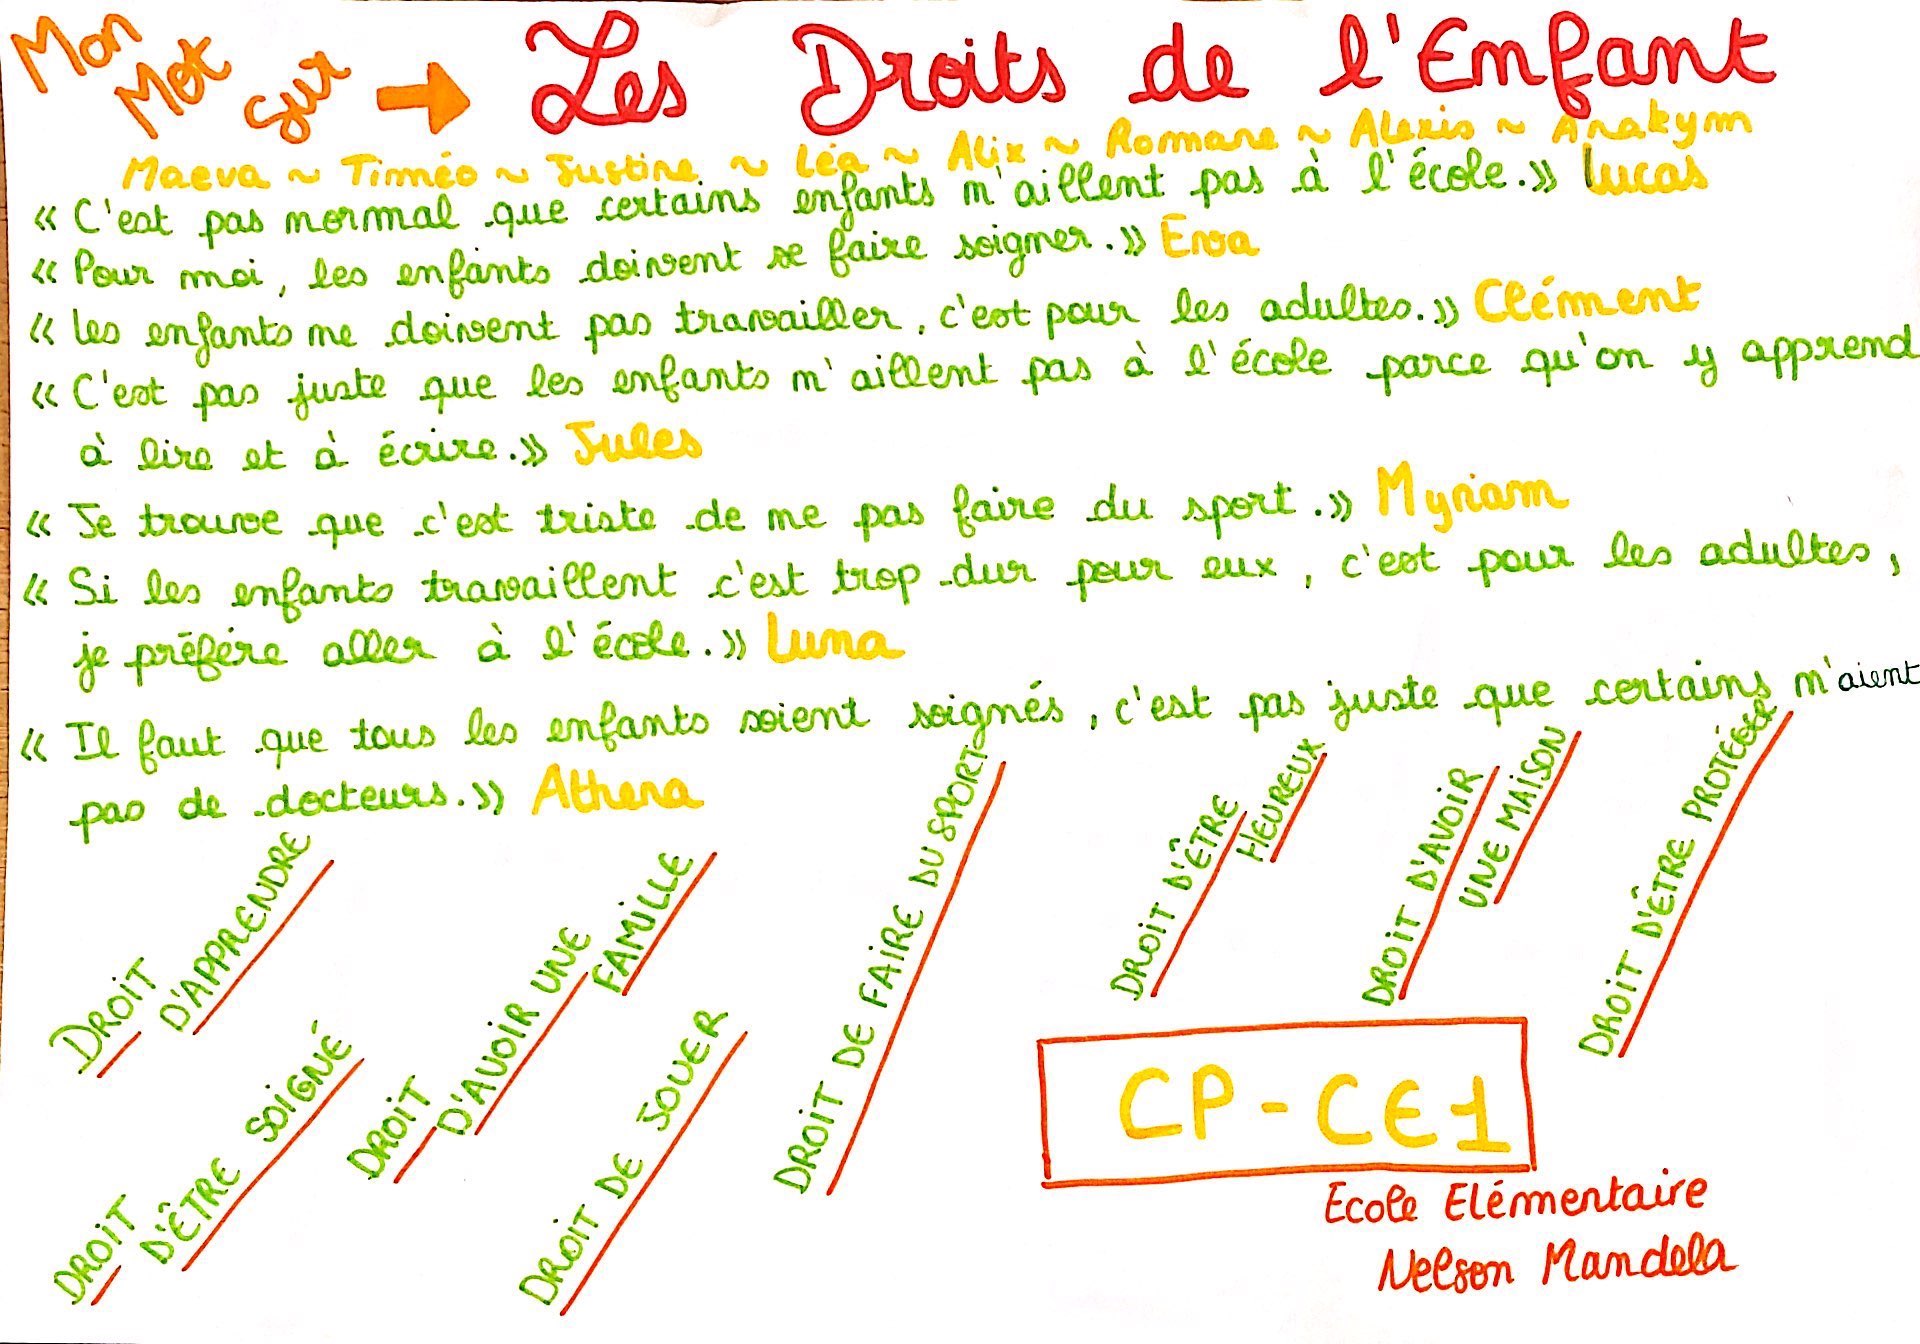 Mon Mot sur → Les Droits de l'Enfant
Maeva ~ Timéo ~ Justine ~ Léa ~ Alix ~ Romane ~ Alexis ~ Anakym
« C'est pas normal que certains enfants n'aillent pas à l'école.» Lucas
« Pour moi, les enfants doivent se faire soigner.» Enoa
« Les enfants ne doivent pas travailler, c'est pour les adultes.» Clément
« C'est pas juste que les enfants n'aillent pas à l'école parce qu'on y apprend
à lire et à écrire.» Jules
« Je trouve que c'est triste de ne pas faire du sport.» Myriam
« Si les enfants travaillent c'est trop dur pour eux, c'est pour les adultes,
je préfère aller à l'école.» Luna
« Il faut que tous les enfants soient soignés, c'est pas juste que certains n'aient
pas de docteurs.» Athena
DROIT D'APPRENDRE
DROIT D'ÊTRE SOIGNÉ
DROIT D'AVOIR UNE FAMILLE
DROIT DE JOUER
DROIT DE FAIRE DU SPORT
DROIT D'ÊTRE HEUREUX
DROIT D'AVOIR
UNE MAISON
DROIT D'ÊTRE PROTÉGER
CP-CE1
Ecole Elémentaire
Nelson Mandela